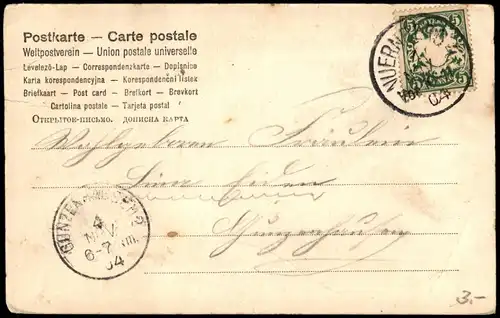 Postkarte — Carte postale
Weltpostverein — Union postale universelle
Levelező-Lap — Correspondenzkarte — Dopisnice
Karta korespondencyjna — Korespondenční lístek
Briefkaart — Post card — Brefkort — Brevkort
Cartolina postale — Tarjeta postal
Открытое-письмо. дописна карта
5 5
NUERN
5 5
04
Wohlgeboren Fräulein
Lina
Gunzenhausen
GUNZENHAUSEN
4
NOV
6-7 VII.
04
3.-